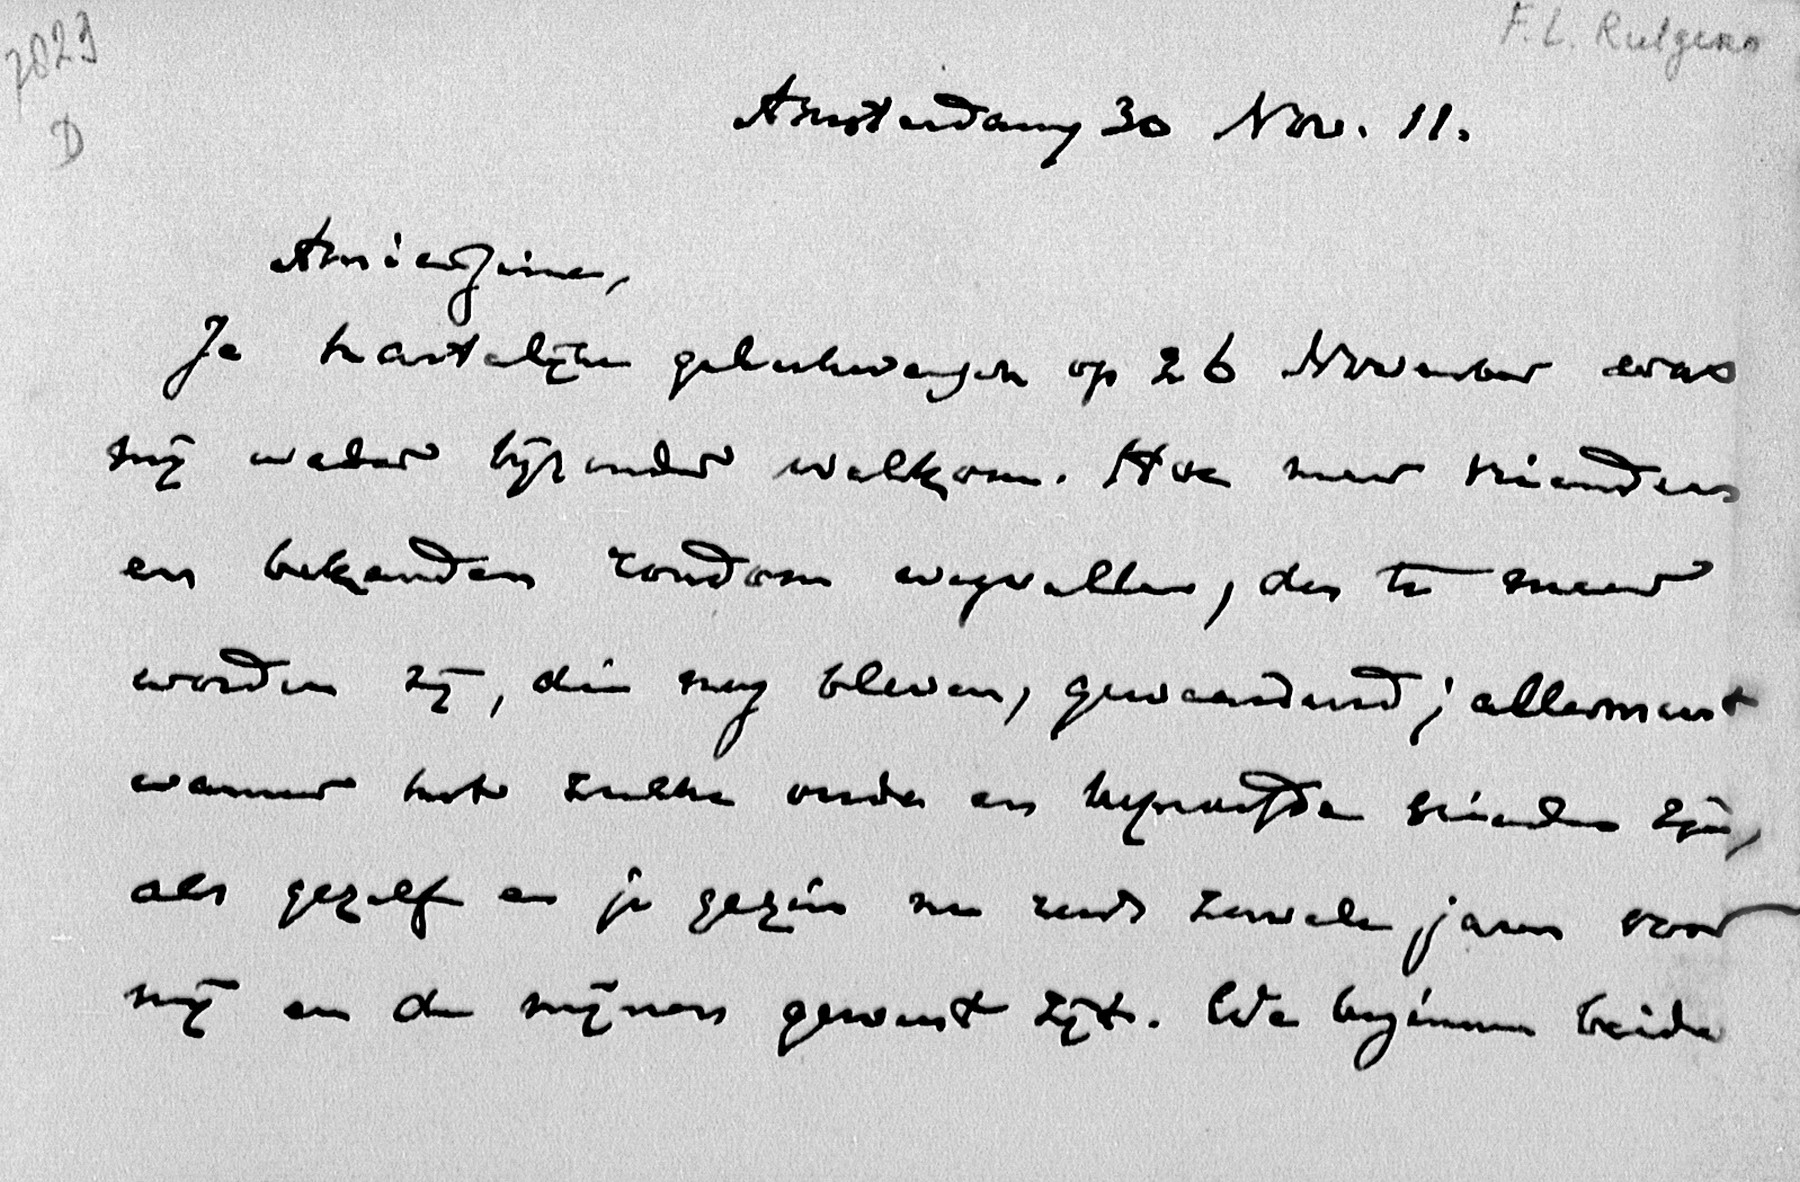 7829
D
F. L. Rutgers
Amsterdam 30 Nov. 11.
Amicissime,
Je hartelijke gelukwenschen op 26 November was
mij weder bijzonder welkom. Hoe meer vrienden
en bekenden rondom wegvallen, des te meer
worden zij, die nog bleven, gewaardeerd; allermeest
wanneer het zulke oude en beproefde vrienden zijn,
als gezelf en je gezin nu reeds zoovele jaren voor
mij en de mijnen geweest zijt. We beginnen beide